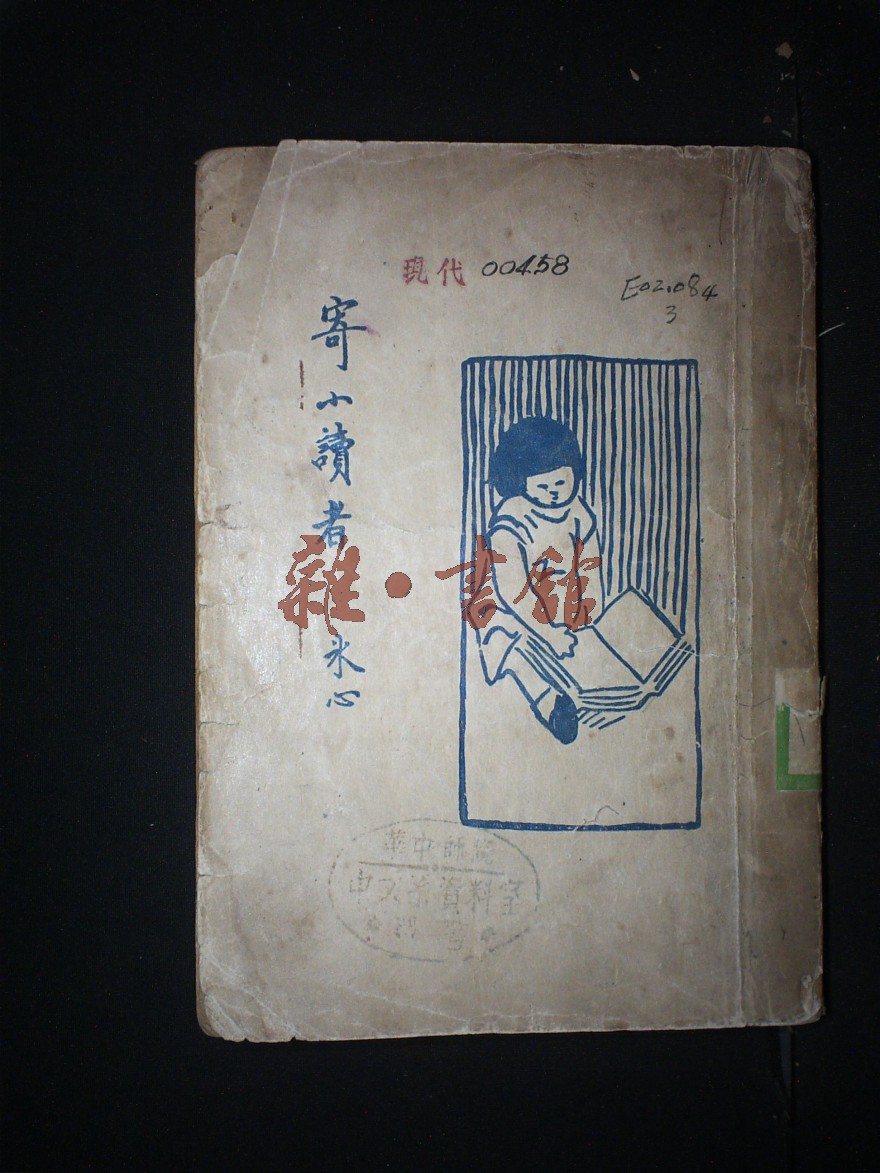 現代 00458
E02.084
3
寄小讀者
冰心
雜·書舘
華中師
中文系資料室